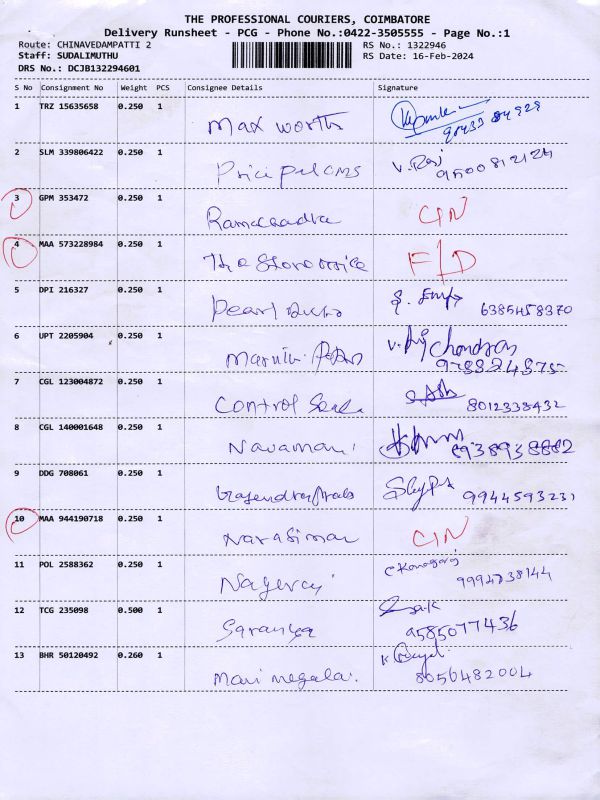 THE PROFESSIONAL COURIERS, COIMBATORE
Delivery Runsheet - PCG - Phone No.:0422-3505555 - Page No.:1
Route: CHINAVEDAMPATTI 2 RS No.: 1322946
Staff: SUDALIMUTHU RS Date: 16-Feb-2024
DRS No.: DCJB132294601
S No Consignment No Weight PCS Consignee Details Signature
1 TRZ 15635658 0.250 1 Max worth
2 SLM 339806422 0.250 1 V. Raj
9500812124
3 GPM 353472 0.250 1 Ramachadra C/N
4 MAA 573228984 0.250 1 F/D
5 DPI 216327 0.250 1 Pearl 6385458370
6 UPT 2205904 0.250 1
7 CGL 123004872 0.250 1 Control
8012338432
8 CGL 140001648 0.250 1 Navamani
8938938882
9 DDG 708061 0.250 1 9944593231
10 MAA 944190718 0.250 1 Narasiman C/N
11 POL 2588362 0.250 1 Nageraj
12 TCG 235098 0.500 1 Saranya
9585077436
13 BHR 50120492 0.260 1 Mani megalai
8056482004